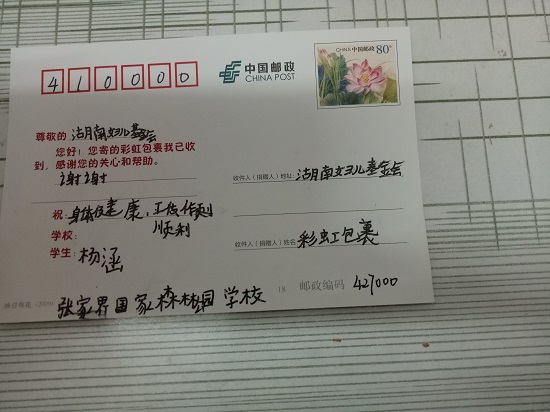 410000
中国邮政
CHINA POST
CHINA 中国邮政 80分
尊敬的 湖南妇儿基金会
您好！您寄的彩虹包裹我已收
到，感谢您的关心和帮助。
谢谢
祝：身体健康，工作
顺利
学校：
学生：杨涵
收件人（捐赠人）地址：湖南妇儿基金会
收件人（捐赠人）姓名：彩虹包裹
张家界国家森林园 学校
18 邮政编码 427000